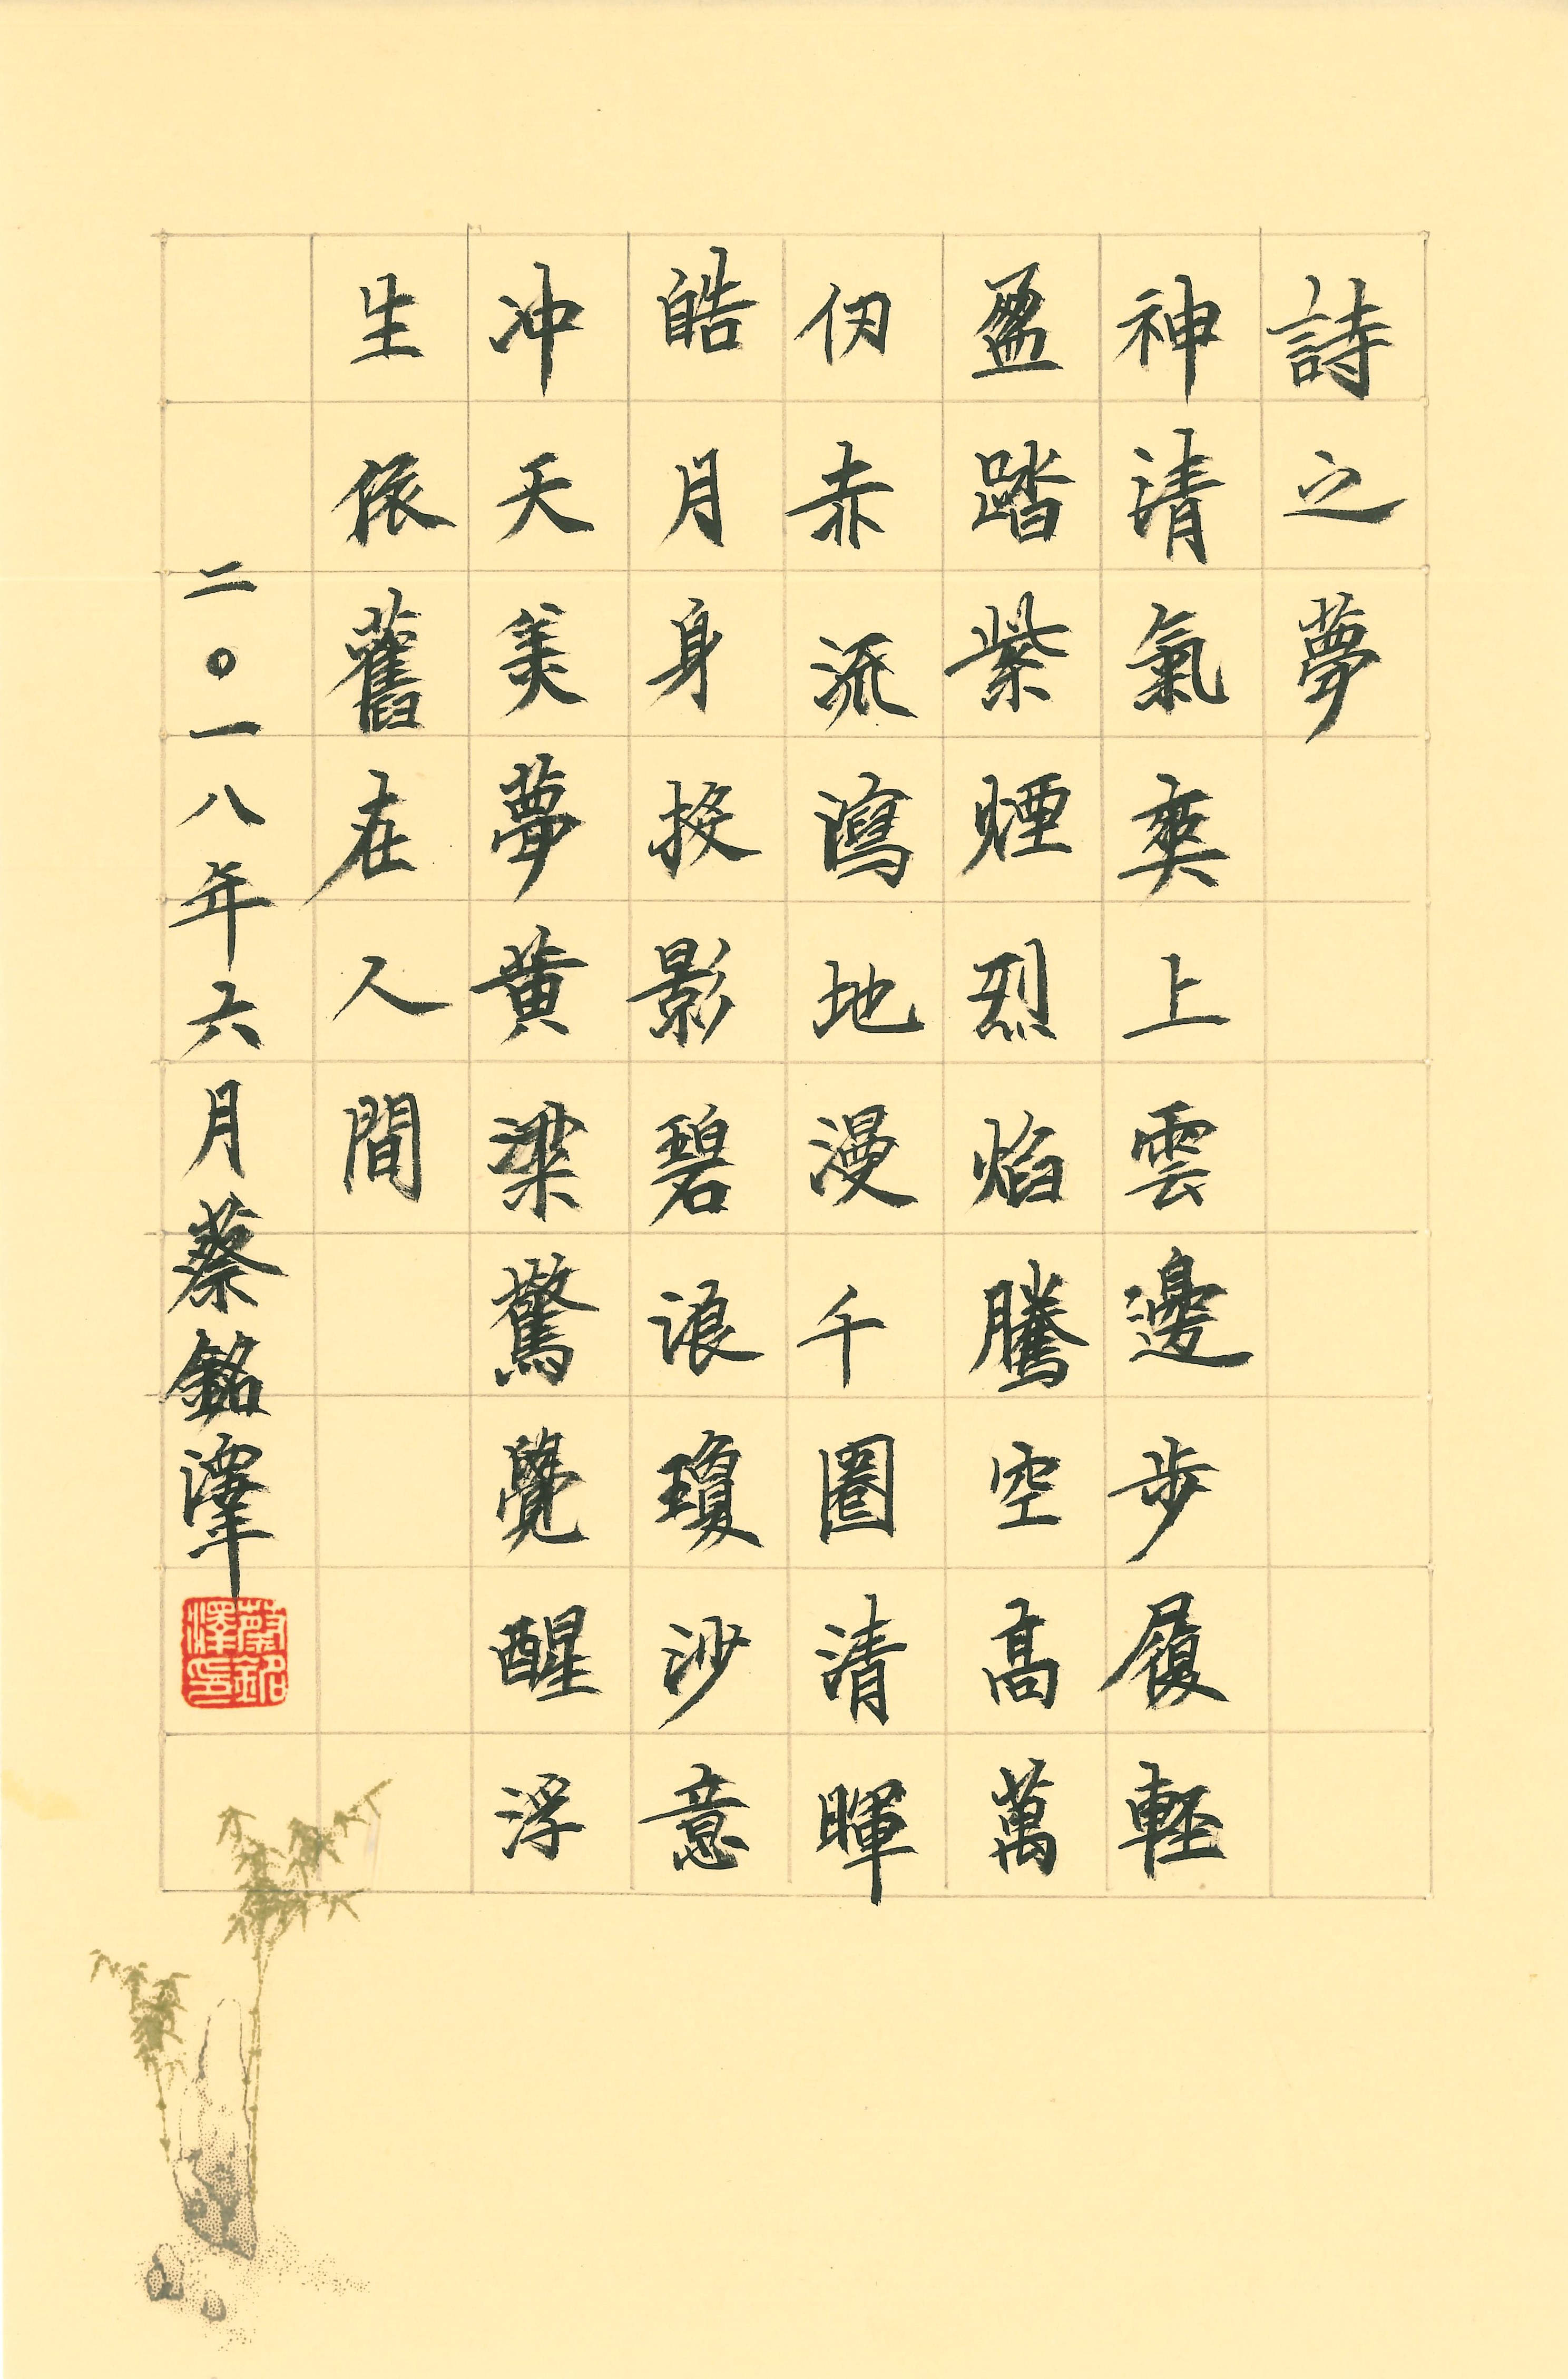 詩之夢
神清氣爽上雲邊步履輕
盈踏紫煙烈焰騰空高萬
仞赤流瀉地漫千圈清暉
皓月身投影碧浪瓊沙意
冲天美夢黄粱驚覺醒浮
生依舊在人間
二〇一八年六月蔡銘澤
蔡銘澤印